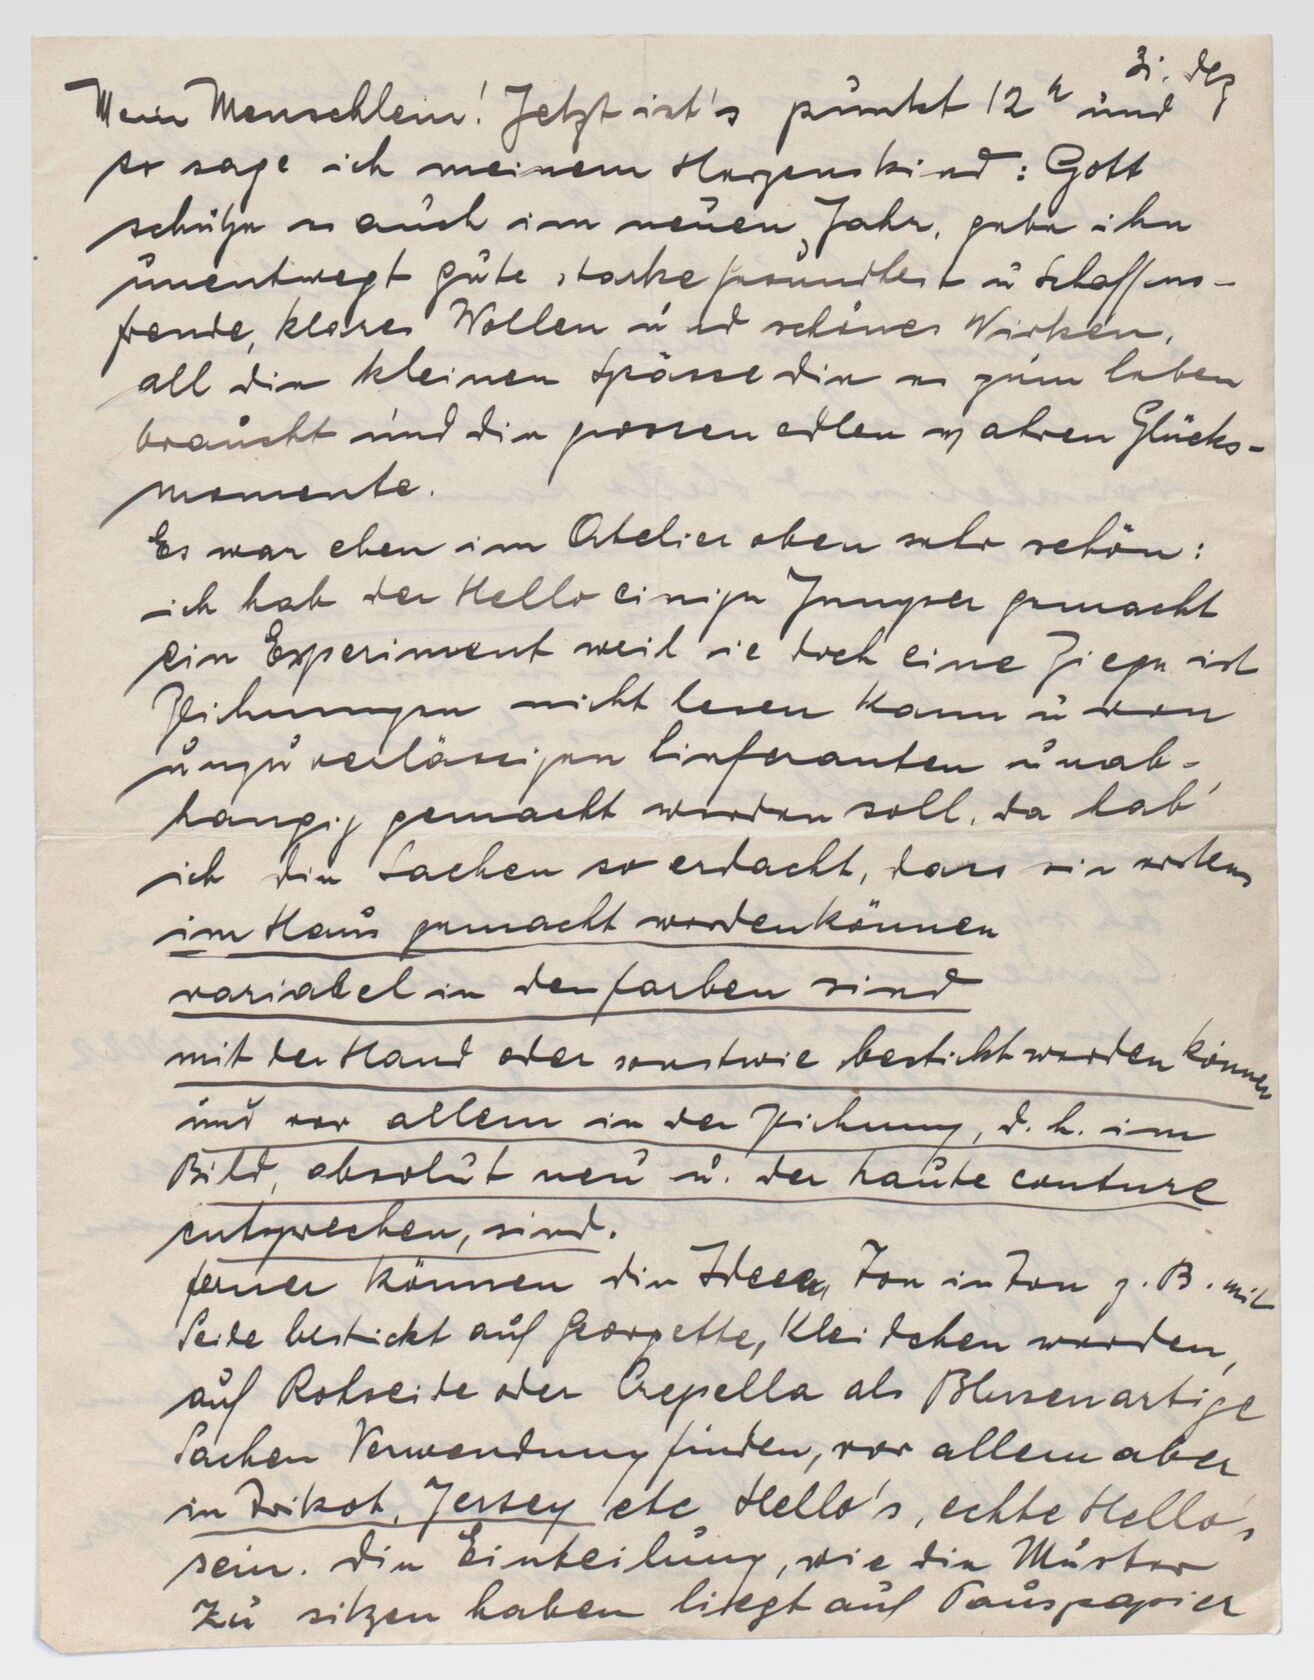 31. Dez
Mein Menschlein! Jetzt ist's punkt 12h und
so sage ich meinem Herzenskind: Gott
schütze es auch im neuen Jahr, gebe ihm
unentwegt gute starke Gesundheit u Schaffens-
freude, klares Wollen und schönes Wirken,
all die kleinen Spässe die es zum leben
braucht und die grossen edlen wahren Glücks-
momente.
Es war eben im Atelier oben sehr schön:
ich hab der Hello einige Jumper gemacht
ein Experiment weil sie doch eine Ziege ist
Zeichnungen nicht lesen kann u von
unzuverlässigen Lieferanten unab-
hängig gemacht werden soll. da hab'
ich die Sachen so erdacht, dass sie erstens
im Haus gemacht werden können
variabel in den farben sind
mit der Hand oder sonstwie bestickt werden können
und vor allem in der Zeichnung, d. h. im
Bild, absolut neu u. der haute couture
entsprechen, sind.
ferner können die Ideen, Ton in Ton z. B. mit
Seide bestickt auf Georgette, Kleidchen werden,
auf Rohseide oder Crepella als Blusenartige
Sachen Verwendung finden, vor allem aber
in Trikot, Jersey etc Hello's, echte Hello's
sein. die Einteilung, wie die Muster
zu sitzen haben liegt auf Pauspapier